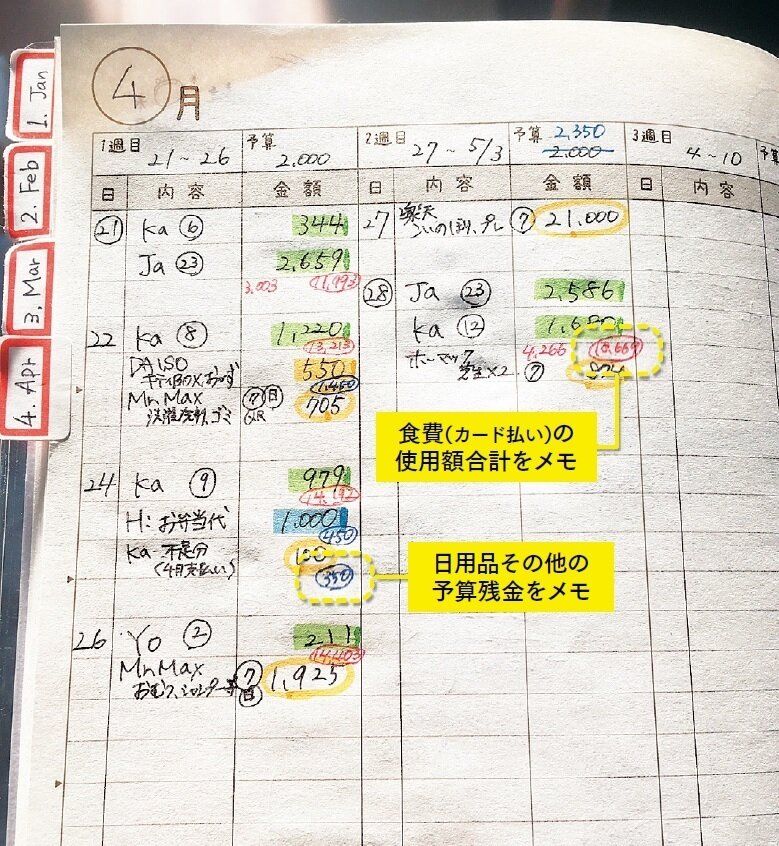 ④月
1. Jan
2. Feb
3. Mar
4. Apr
1週目 21～26 予算 2,000
2週目 27～5/3 予算 2,350 2,000
3週目 4～10
日 内容 金額 日 内容 金額 日 内容
㉑ Ka ⑥ 344
Ja ㉓ 2,659
3,003
22 Ka ⑧ 1,220
13,213
DAISO 550
1,450
MrMax ⑦ 日 705
QR
24 Ka ⑨ 979
14,192
H: お弁当代 1,000
450
Ka 不足分 100
(4月支払い)
350
26 Yo ② 211
14,403
MrMax ⑦ 日 1,925
27 楽天 ⑦ 21,000
㉘ Ja ㉓ 2,586
Ka ⑫
4,266
ホーマック
芝生×2 ⑦
食費（カード払い）の
使用額合計をメモ
日用品その他の
予算残金をメモ